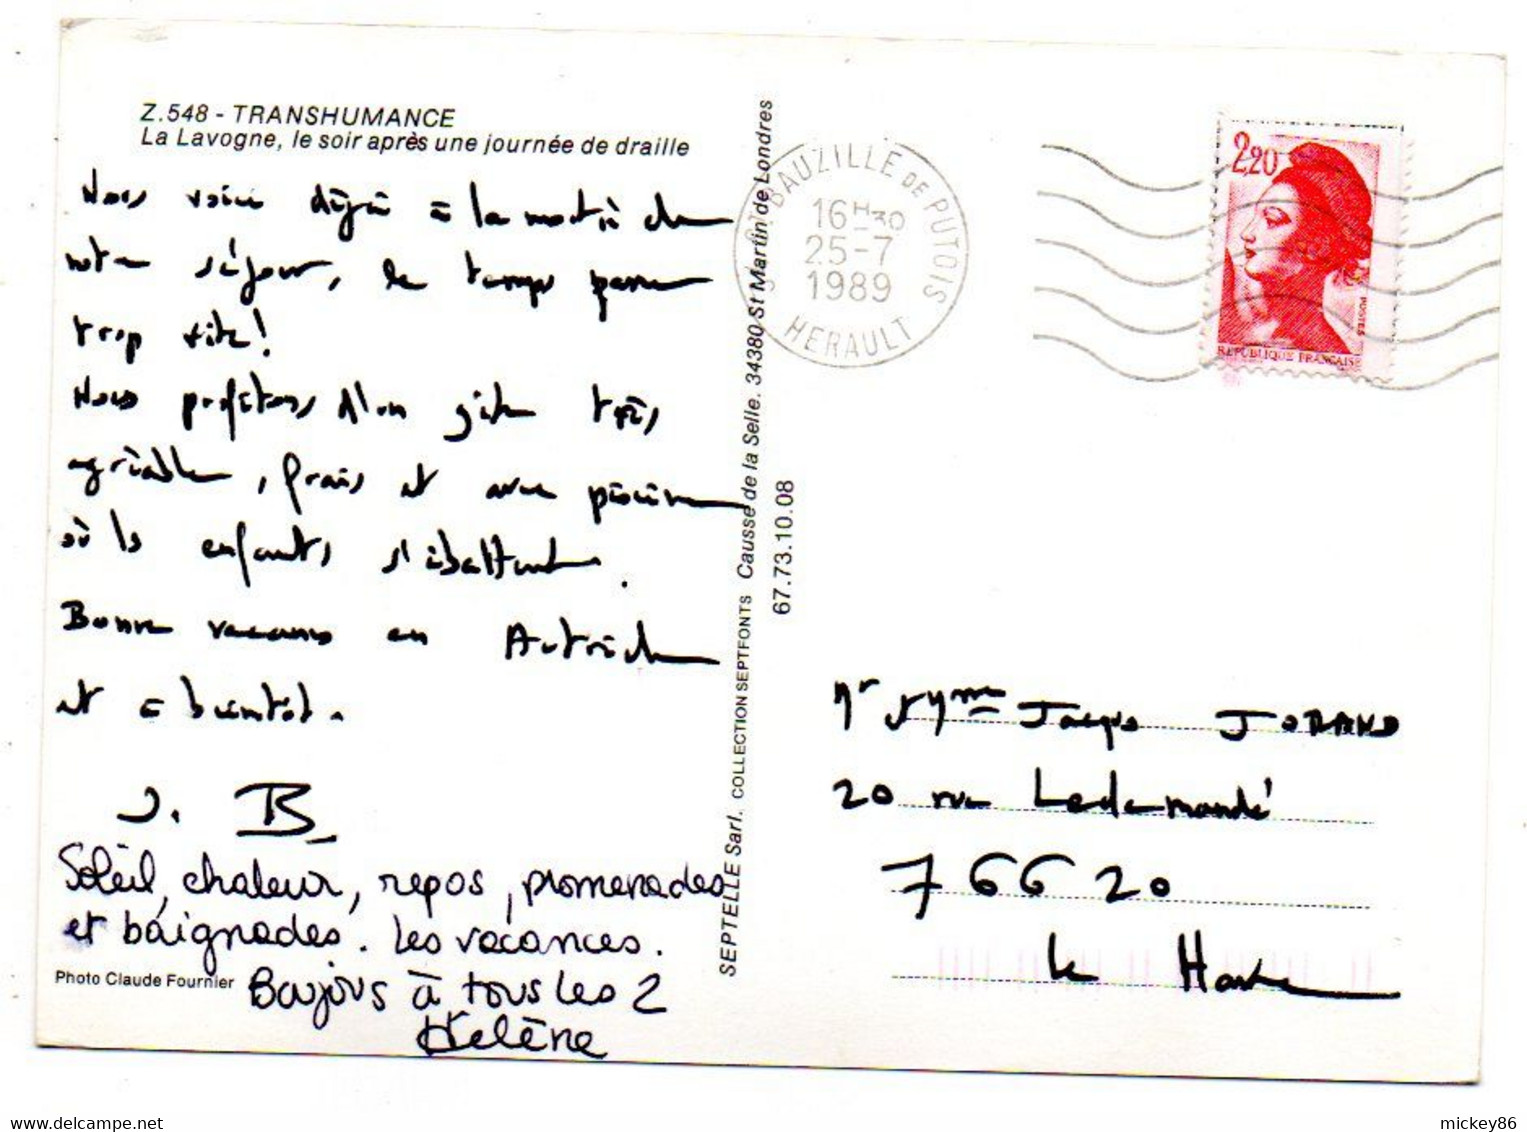 Z.548 - TRANSHUMANCE
La Lavogne, le soir après une journée de draille
Nous voici déjà à la moitié de
notre séjour, le temps passe
trop vite!
Nous profitons d'un gîte très
agréable, frais et avec piscine
où les enfants s'ébattent.
Bonnes vacances en Autriche
et à bientôt.
J. B
Soleil, chaleur, repos, promenades
et baignades. Les vacances.
Boujous à tous les 2
Hélène
Photo Claude Fournier
SEPTELLE Sarl. COLLECTION SEPTFONTS Causse de la Selle. 34380 St Martin de Londres
67.73.10.08
BAUZILLE DE PUTOIS
16H30
25-7
1989
HERAULT
2,20
POSTES
REPUBLIQUE FRANÇAISE
Mr et Mme Jacques JORAND
20 rue
76620
Le Havre
mickey86